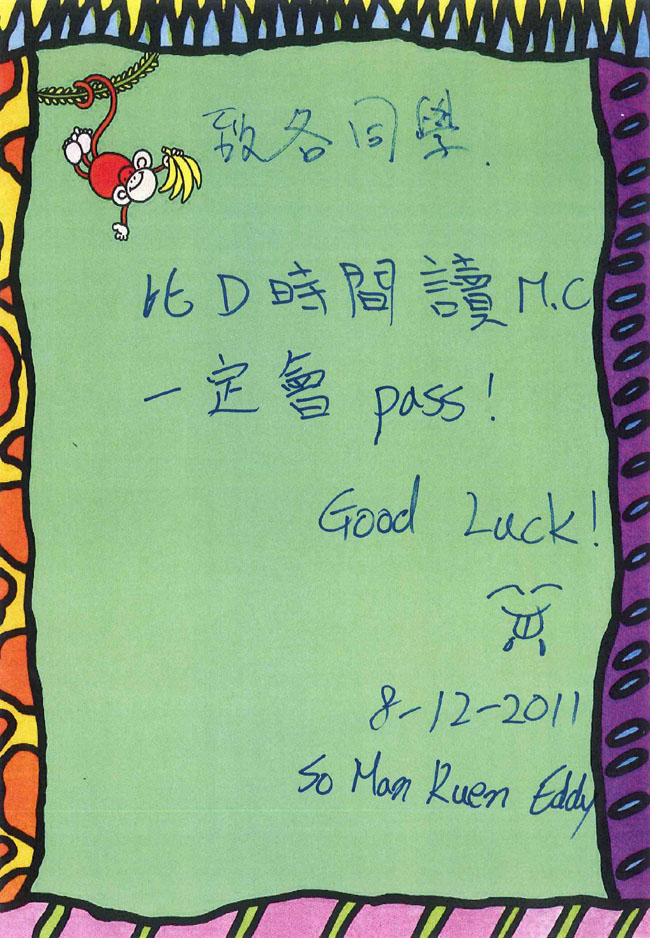 致各同學.
比D時間讀M.C
一定會 pass!
Good Luck!
8-12-2011
So Man Kuen Eddy